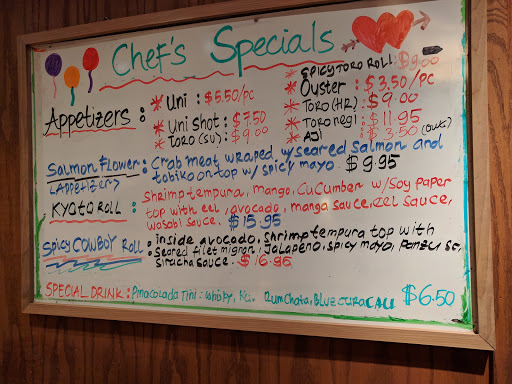 Chef's Specials
Appetizers : * Uni : $5.50/PC
* Uni shot : $7.50
* Toro (SU) : $9.00
* SPICY TORO ROLL : $9.00
* Oyster : $3.50/PC
* Toro (H.R) : $9.00
* Toro negi : $11.95
* Aji : $3.50
Salmon Flower : Crab meat wraped w/seared Salmon and
(Appetizer) tobiko on top w/ spicy mayo. $9.95
KYOTO ROLL : Shrimp tempura, Mango, Cucumber w/Soy Paper
top with eel, avocado, manga sauce, eel sauce,
wasabi sauce. $15.95
Spicy COWBOY Roll : inside avocado, shrimp tempura top with
Seared filet mignon, Jalapeno, spicy mayo, Ponzu sc,
Siracha sauce. $16.95
SPECIAL DRINK : Pinacolada Tini : Rum Chata, Blue curacau $6.50